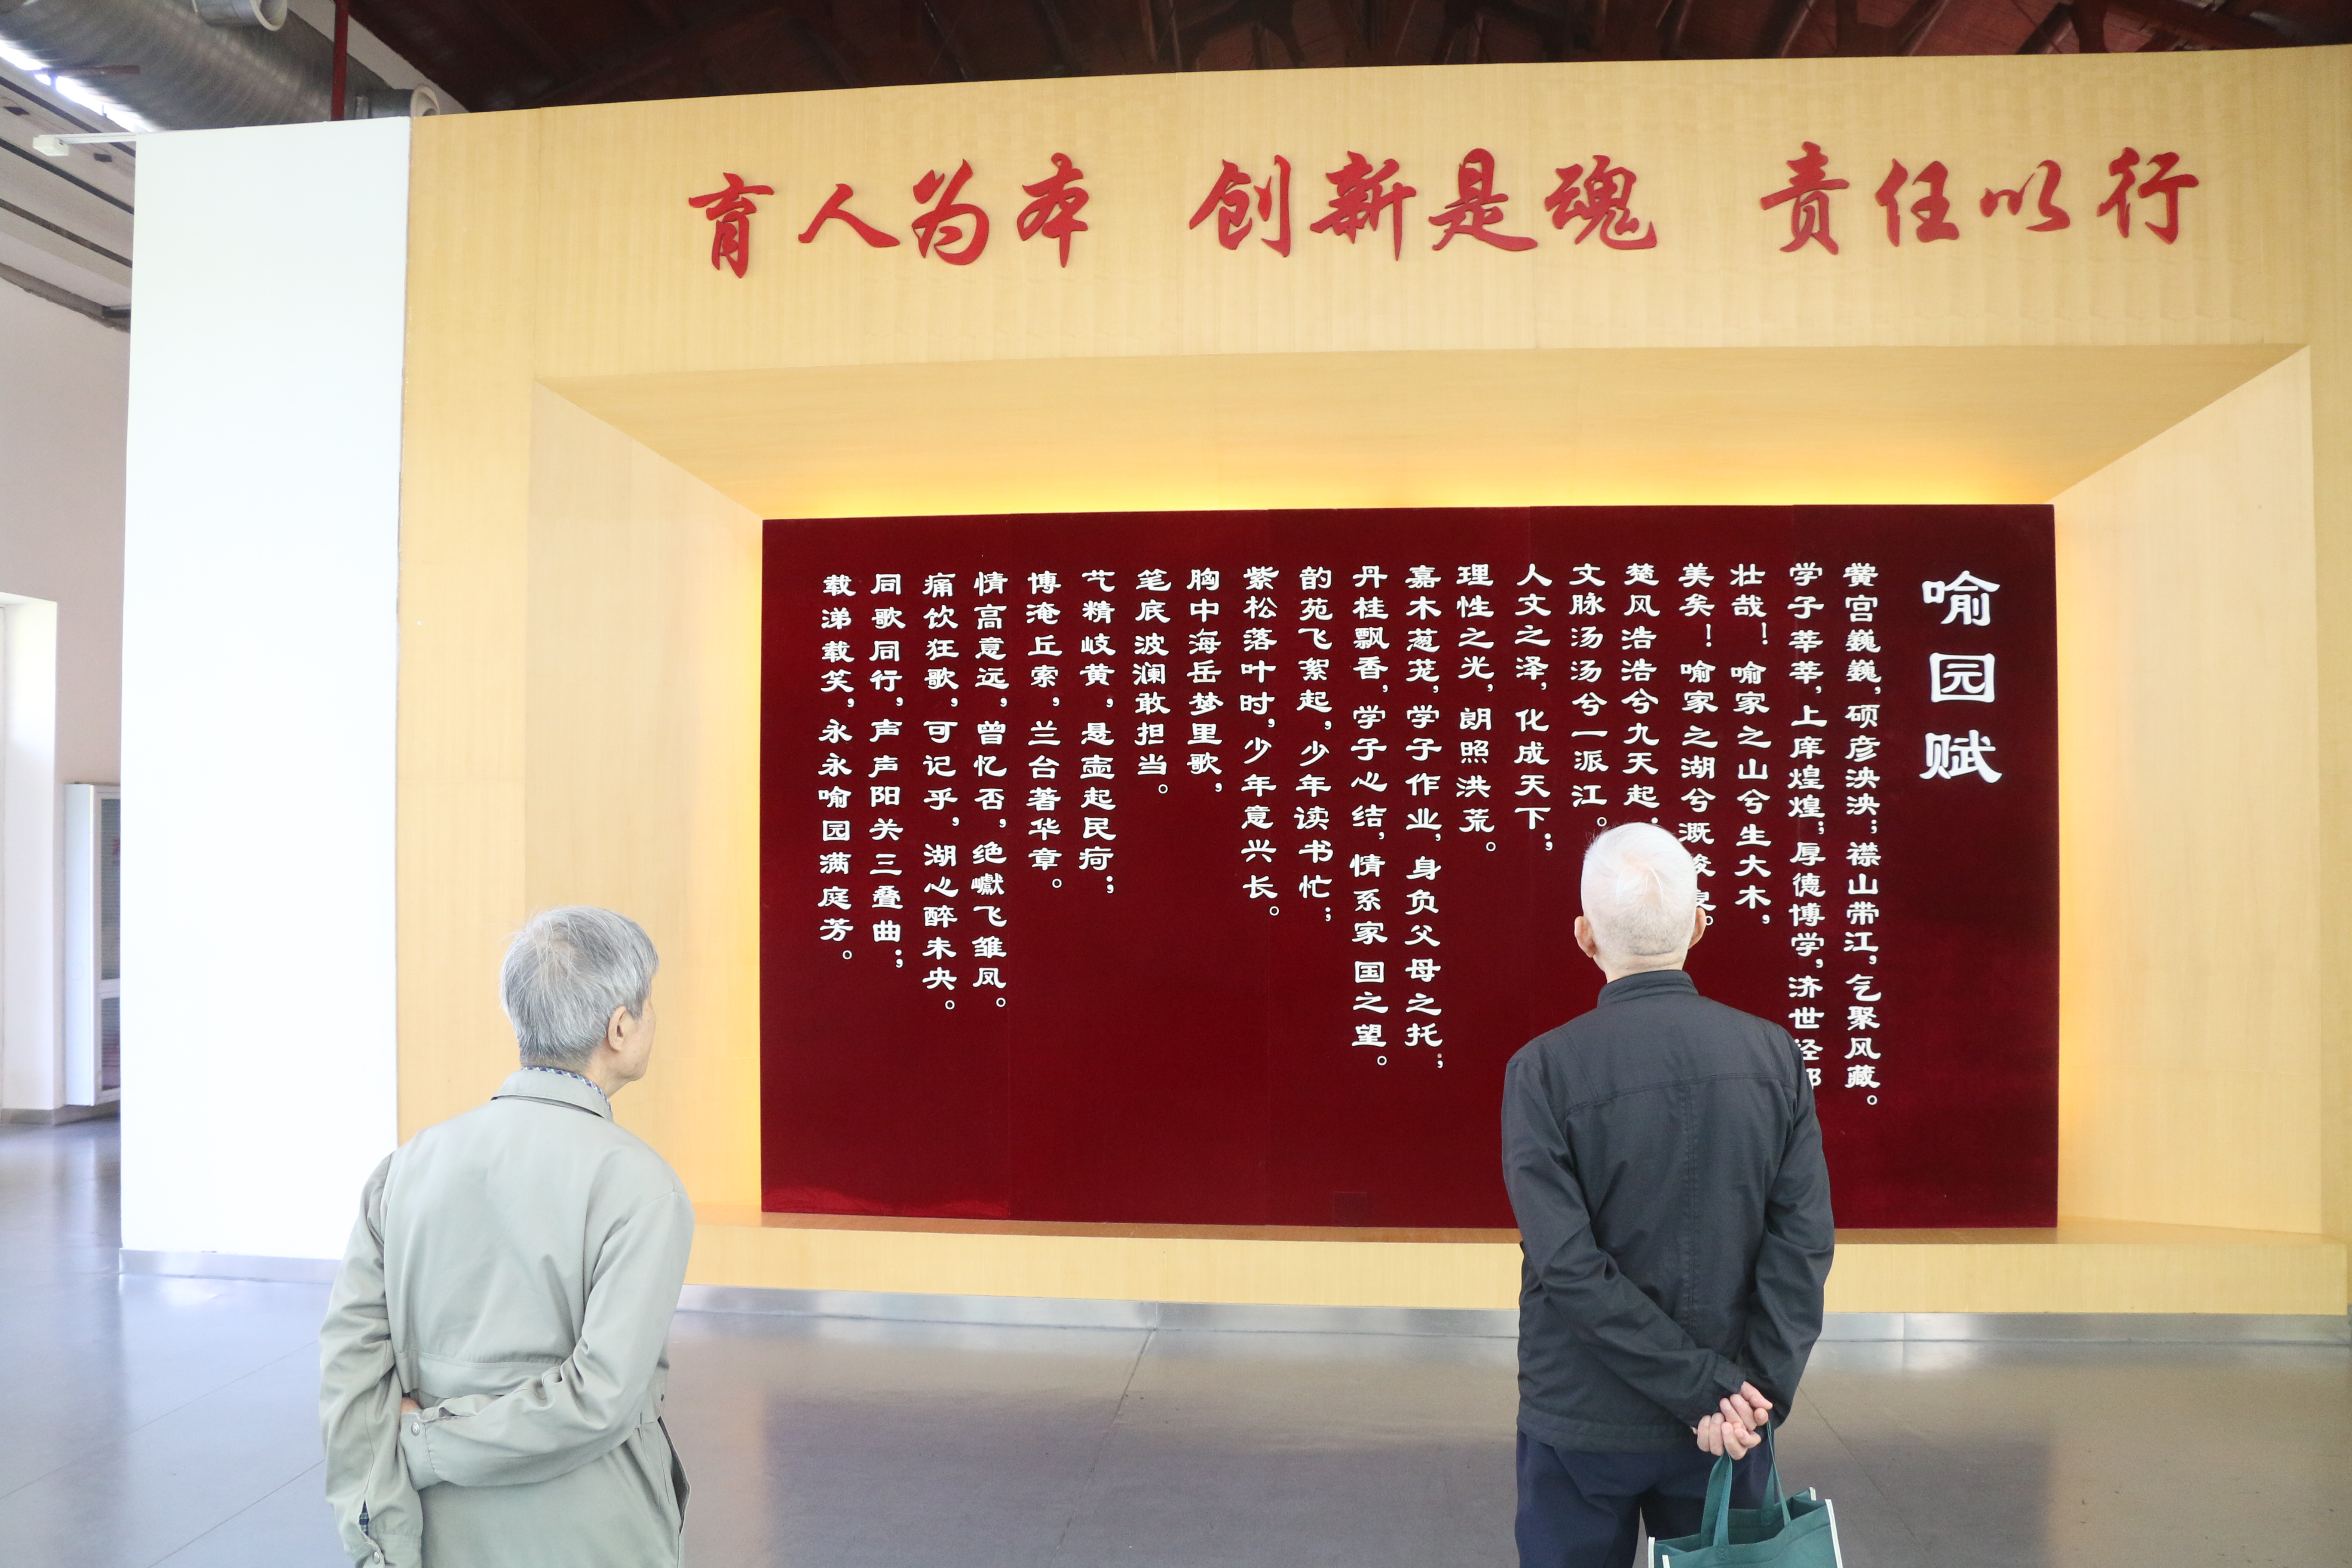 育人为本 创新是魂 责任以行
喻园赋
黉宫巍巍,硕彦泱泱;襟山带江,气聚风藏。
学子莘莘,上庠煌煌;厚德博学,济世经邦
壮哉!喻家之山兮生大木,
美矣!喻家之湖兮溉
楚风浩浩兮九天起;
文脉汤汤兮一派江。
人文之泽,化成天下;
理性之光,朗照洪荒。
嘉木葱茏,学子作业,身负父母之托;
丹桂飘香,学子心结,情系家国之望。
韵苑飞絮起,少年读书忙;
紫松落叶时,少年意兴长。
胸中海岳梦里歌,
笔底波澜敢担当。
艺精岐黄,悬壶起民疴;
博淹丘索,兰台著华章。
情高意远,曾忆否,绝巘飞雏凤。
痛饮狂歌,可记乎,湖心醉未央。
同歌同行,声声阳关三叠曲;
载涕载笑,永永喻园满庭芳。